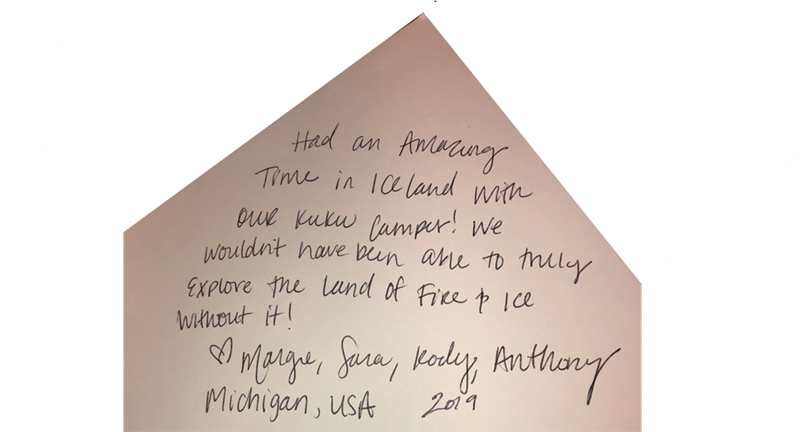 Had an Amazing
Time in Iceland with
our KuKu Camper! We
wouldn't have been able to truly
Explore the Land of Fire & Ice
without it!
♡ Margie, Sara, Kody, Anthony
Michigan, USA 2019